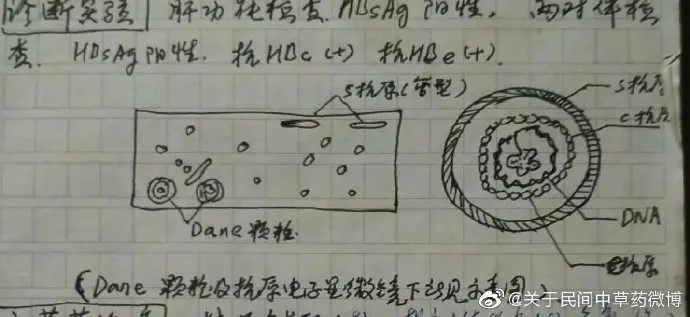 诊断实验 肝功能检查 HBsAg阳性. 两对体检
查. HBsAg阳性. 抗HBc(+) 抗HBe(+).
S抗原(管型)
Dane颗粒
S抗原
C抗原
DNA
e抗原
(Dane颗粒及抗原电子显微镜下所见示意图)
@关于民间中草药微博